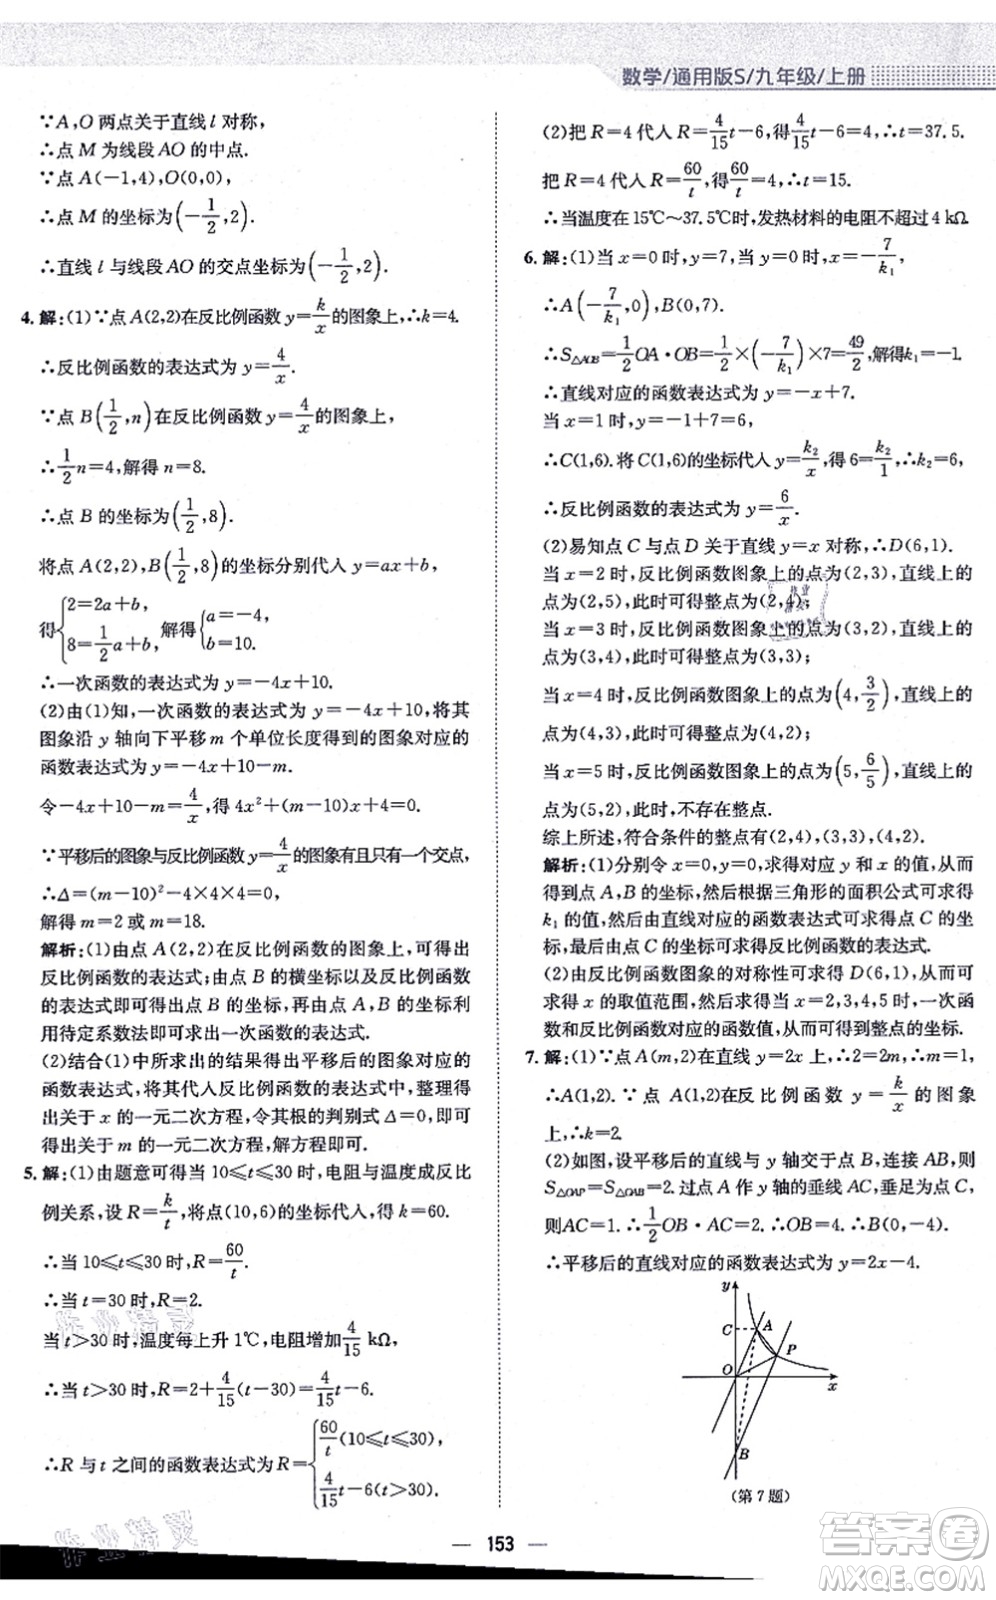 数学/通用版S/九年级/上册
∵A,O 两点关于直线 l 对称,
∴点 M 为线段 AO 的中点.
∵点 A(-1,4),O(0,0),
∴点 M 的坐标为(-1/2,2).
∴直线 l 与线段 AO 的交点坐标为(-1/2,2).
4.解:(1)∵点 A(2,2)在反比例函数 y=k/x的图象上,∴k=4.
∴反比例函数的表达式为 y=4/x.
∵点 B(1/2,n)在反比例函数 y=4/x的图象上,
∴1/2n=4,解得 n=8.
∴点 B 的坐标为(1/2,8).
将点 A(2,2),B(1/2,8)的坐标分别代入 y=ax+b,
得{2=2a+b, 8=1/2a+b, 解得{a=-4, b=10.
∴一次函数的表达式为 y=-4x+10.
(2)由(1)知,一次函数的表达式为 y=-4x+10,将其
图象沿 y 轴向下平移 m 个单位长度得到的图象对应的
函数表达式为 y=-4x+10-m.
令-4x+10-m=4/x,得 4x²+(m-10)x+4=0.
∵平移后的图象与反比例函数 y=4/x的图象有且只有一个交点,
∴Δ=(m-10)²-4×4×4=0,
解得 m=2 或 m=18.
解析:(1)由点 A(2,2)在反比例函数的图象上,可得出
反比例函数的表达式;由点 B 的横坐标以及反比例函数
的表达式即可得出点 B 的坐标,再由点 A,B 的坐标利
用待定系数法即可求出一次函数的表达式.
(2)结合(1)中所求出的结果得出平移后的图象对应的
函数表达式,将其代入反比例函数的表达式中,整理得
出关于 x 的一元二次方程,令其根的判别式 Δ=0,即可
得出关于 m 的一元二次方程,解方程即可.
5.解:(1)由题意可得当 10≤t≤30 时,电阻与温度成反比
例关系,设 R=k/t,将点(10,6)的坐标代入,得 k=60.
∴当 10≤t≤30 时,R=60/t.
∴当 t=30 时,R=2.
当 t>30 时,温度每上升 1℃,电阻增加4/15 kΩ.
∴当 t>30 时,R=2+4/15(t-30)=4/15t-6.
∴R 与 t 之间的函数表达式为 R={60/t(10≤t≤30), 4/15t-6(t>30).
(2)把 R=4 代入 R=4/15t-6,得4/15t-6=4,∴t=37.5.
把 R=4 代入 R=60/t,得60/t=4,∴t=15.
∴当温度在15℃~37.5℃时,发热材料的电阻不超过 4 kΩ.
6.解:(1)当 x=0 时,y=7,当 y=0 时,x=-7/k₁,
∴A(-7/k₁,0),B(0,7).
∴S△AOB=1/2OA·OB=1/2×(-7/k₁)×7=49/2,解得k₁=-1.
∴直线对应的函数表达式为 y=-x+7.
当 x=1 时,y=-1+7=6,
∴C(1,6).将 C(1,6)的坐标代入 y=k₂/x,得 6=k₂/1,∴k₂=6,
∴反比例函数的表达式为 y=6/x.
(2)易知点 C 与点 D 关于直线 y=x 对称,∴D(6,1).
当 x=2 时,反比例函数图象上的点为(2,3),直线上的
点为(2,5),此时可得整点为(2,4);
当 x=3 时,反比例函数图象上的点为(3,2),直线上的
点为(3,4),此时可得整点为(3,3);
当 x=4 时,反比例函数图象上的点为(4,3/2),直线上的
点为(4,3),此时可得整点为(4,2);
当 x=5 时,反比例函数图象上的点为(5,6/5),直线上的
点为(5,2),此时,不存在整点.
综上所述,符合条件的整点有(2,4),(3,3),(4,2).
解析:(1)分别令 x=0,y=0,求得对应 y 和 x 的值,从而
得到点 A,B 的坐标,然后根据三角形的面积公式可求得
k₁ 的值,然后由直线对应的函数表达式可求得点 C 的坐
标,最后由点 C 的坐标可求得反比例函数的表达式.
(2)由反比例函数图象的对称性可求得 D(6,1),从而可
求得 x 的取值范围,然后再求得当 x=2,3,4,5时,一次函
数和反比例函数对应的函数值,从而可求得整点的坐标.
7.解:(1)∵点 A(m,2)在直线 y=2x 上,∴2=2m,∴m=1,
∴A(1,2).∵点 A(1,2)在反比例函数 y=k/x 的图象
上,∴k=2.
(2)如图,设平移后的直线与 y 轴交于点 B,连接 AB,则
S△OAP=S△OAB=2.过点 A 作 y 轴的垂线 AC,垂足为点 C,
则AC=1.∴1/2OB·AC=2,∴OB=4.∴B(0,-4).
∴平移后的直线对应的函数表达式为 y=2x-4.
y
C A
P
O x
B
(第 7 题)
153
作业精灵
作业精灵
答案圈
MXQE.COM